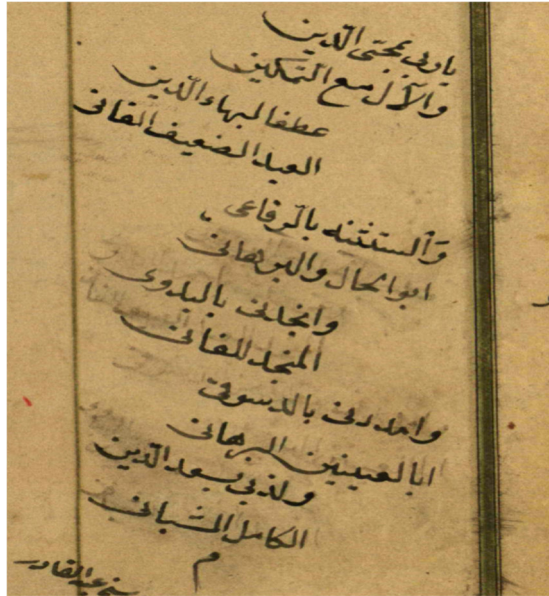 ياربي بمحيي الدين
والآل مع التمكين
عطفا لبهاء الدين
العبد الضعيف الفاني
بالرفاعي
ابو الحال والبرهاني
وانجدني بالبدوي
المنجد للفاني
وامددني بالدسوقي
ابا العينين البرهاني
ولذبي بسعد الدين
الكامل الشباني
م
عبد القادر